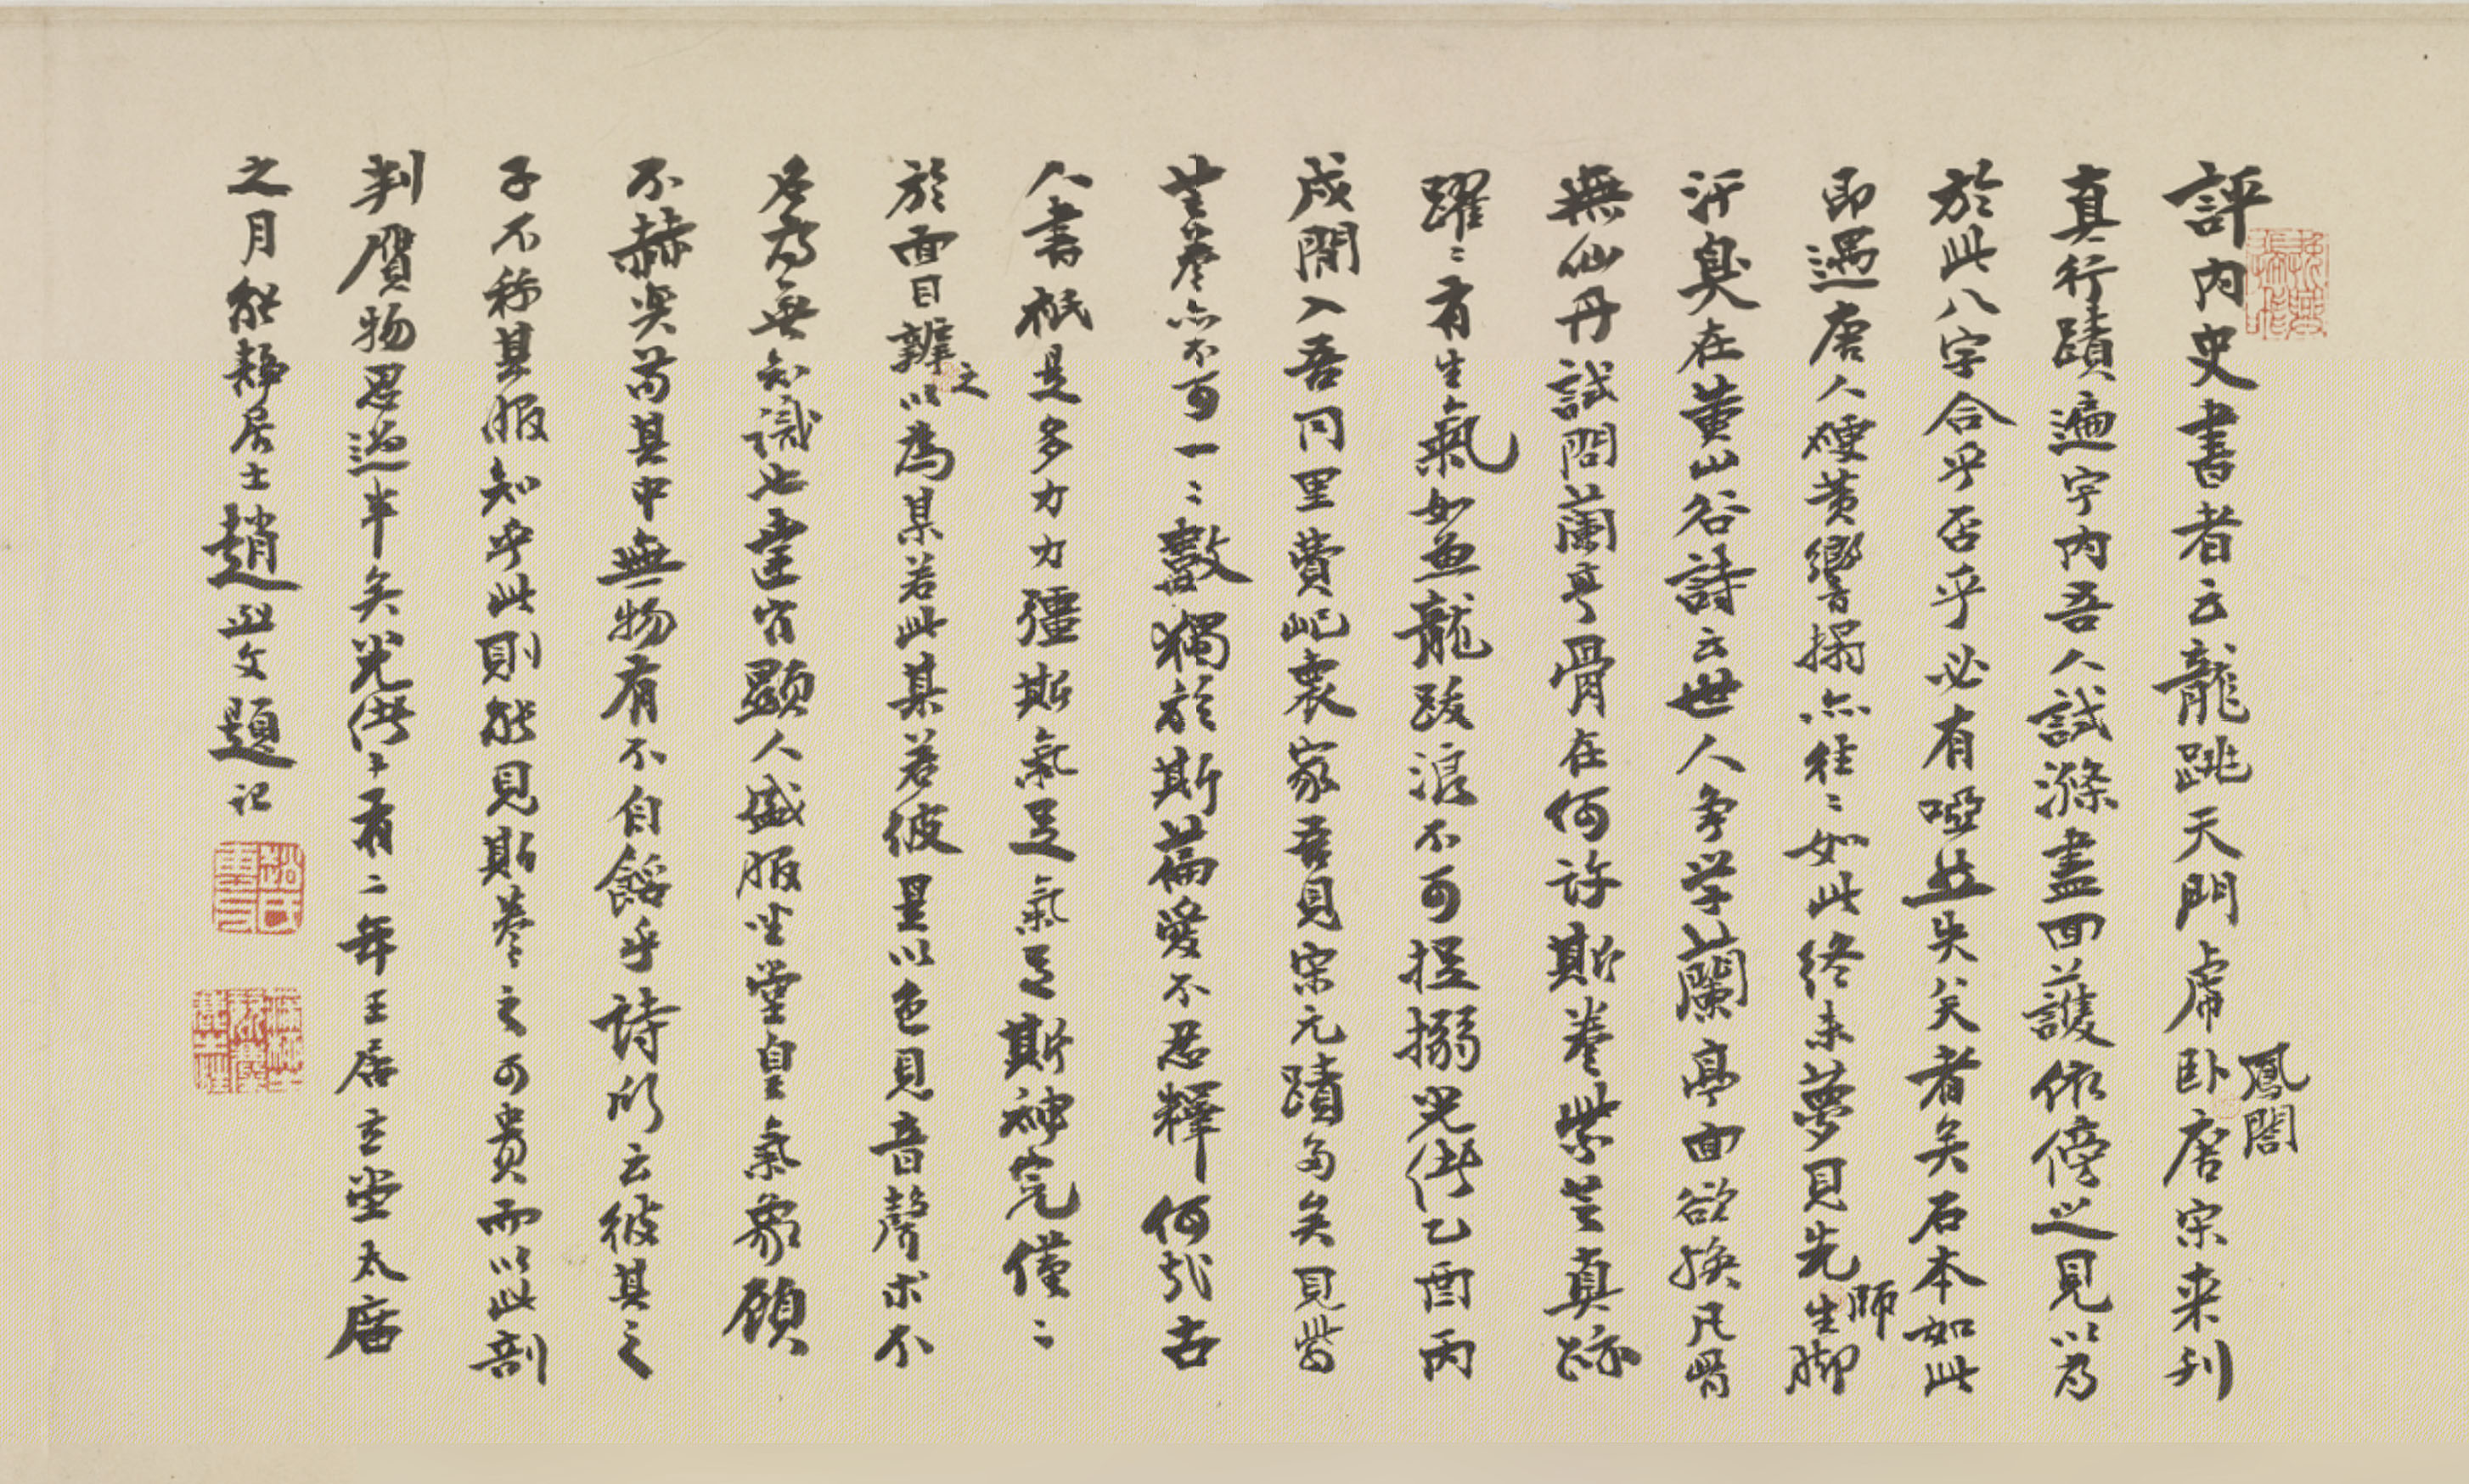 評內史書者云龍跳天門虎卧鳳閣唐宋来刋
真行蹟遍宇内吾人試滌盡回護依傍之見以為
於此八字合乎否乎必有啞然失矣者矣石本如此
即遇唐人硬黄響搨亦往々如此終未夢見先師脚
汗臭在黄山谷詩云世人争学蘭亭面欲換凡骨
無仙丹試問蘭亭骨在何許斯卷紫芝真跡
躍々有生氣如魚龍跋浪不可捉搦光緒乙酉丙
戌間入吾同里費屺褱家吾見宋元蹟多矣見紫
芝卷亦不可一々數獨於斯篇愛不忍釋何哉古
人書祇是多力力彊斯氣足氣足斯神完僅々
於面目辨之以為某若此某若彼是以色見音聲求不
名為無知識也達官顯人盛服坐堂皇氣象頎
不赫奕苟其中無物有不自餡乎詩所云彼其之
子不称其服知乎此則能見斯卷之可貴而以此剖
判贋物思過半矣光緒十有二年王居玄堂太廟
之月能靜居士趙烈文題記